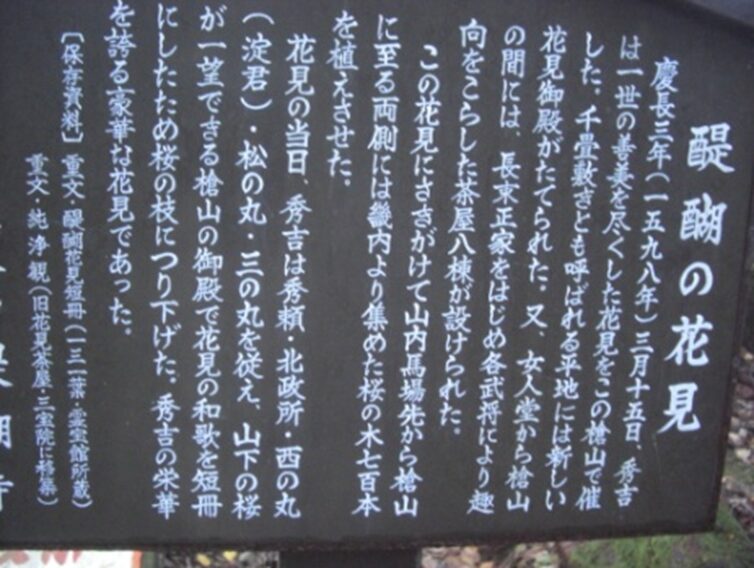 醍醐の花見
慶長三年(一五九八年)三月十五日、秀吉
は一世の善美を尽くした花見をこの槍山で催
した。千畳敷きとも呼ばれる平地には新しい
花見御殿がたてられた。又、女人堂から槍山
の間には、長束正家をはじめ各武将により趣
向をこらした茶屋八棟が設けられた。
この花見にさきがけて山内馬場先から槍山
に至る両側には畿内より集めた桜の木七百本
を植えさせた。
花見の当日、秀吉は秀頼・北政所・西の丸
(淀君)・松の丸・三の丸を従え、山下の桜
が一望できる槍山の御殿で花見の和歌を短冊
にしたため桜の枝につり下げた。秀吉の栄華
を誇る豪華な花見であった。
〔保存資料〕重文・醍醐花見短冊(一三一葉・霊宝館所蔵)
重文・純浄観(旧花見茶屋・三宝院に移築)
醐寺